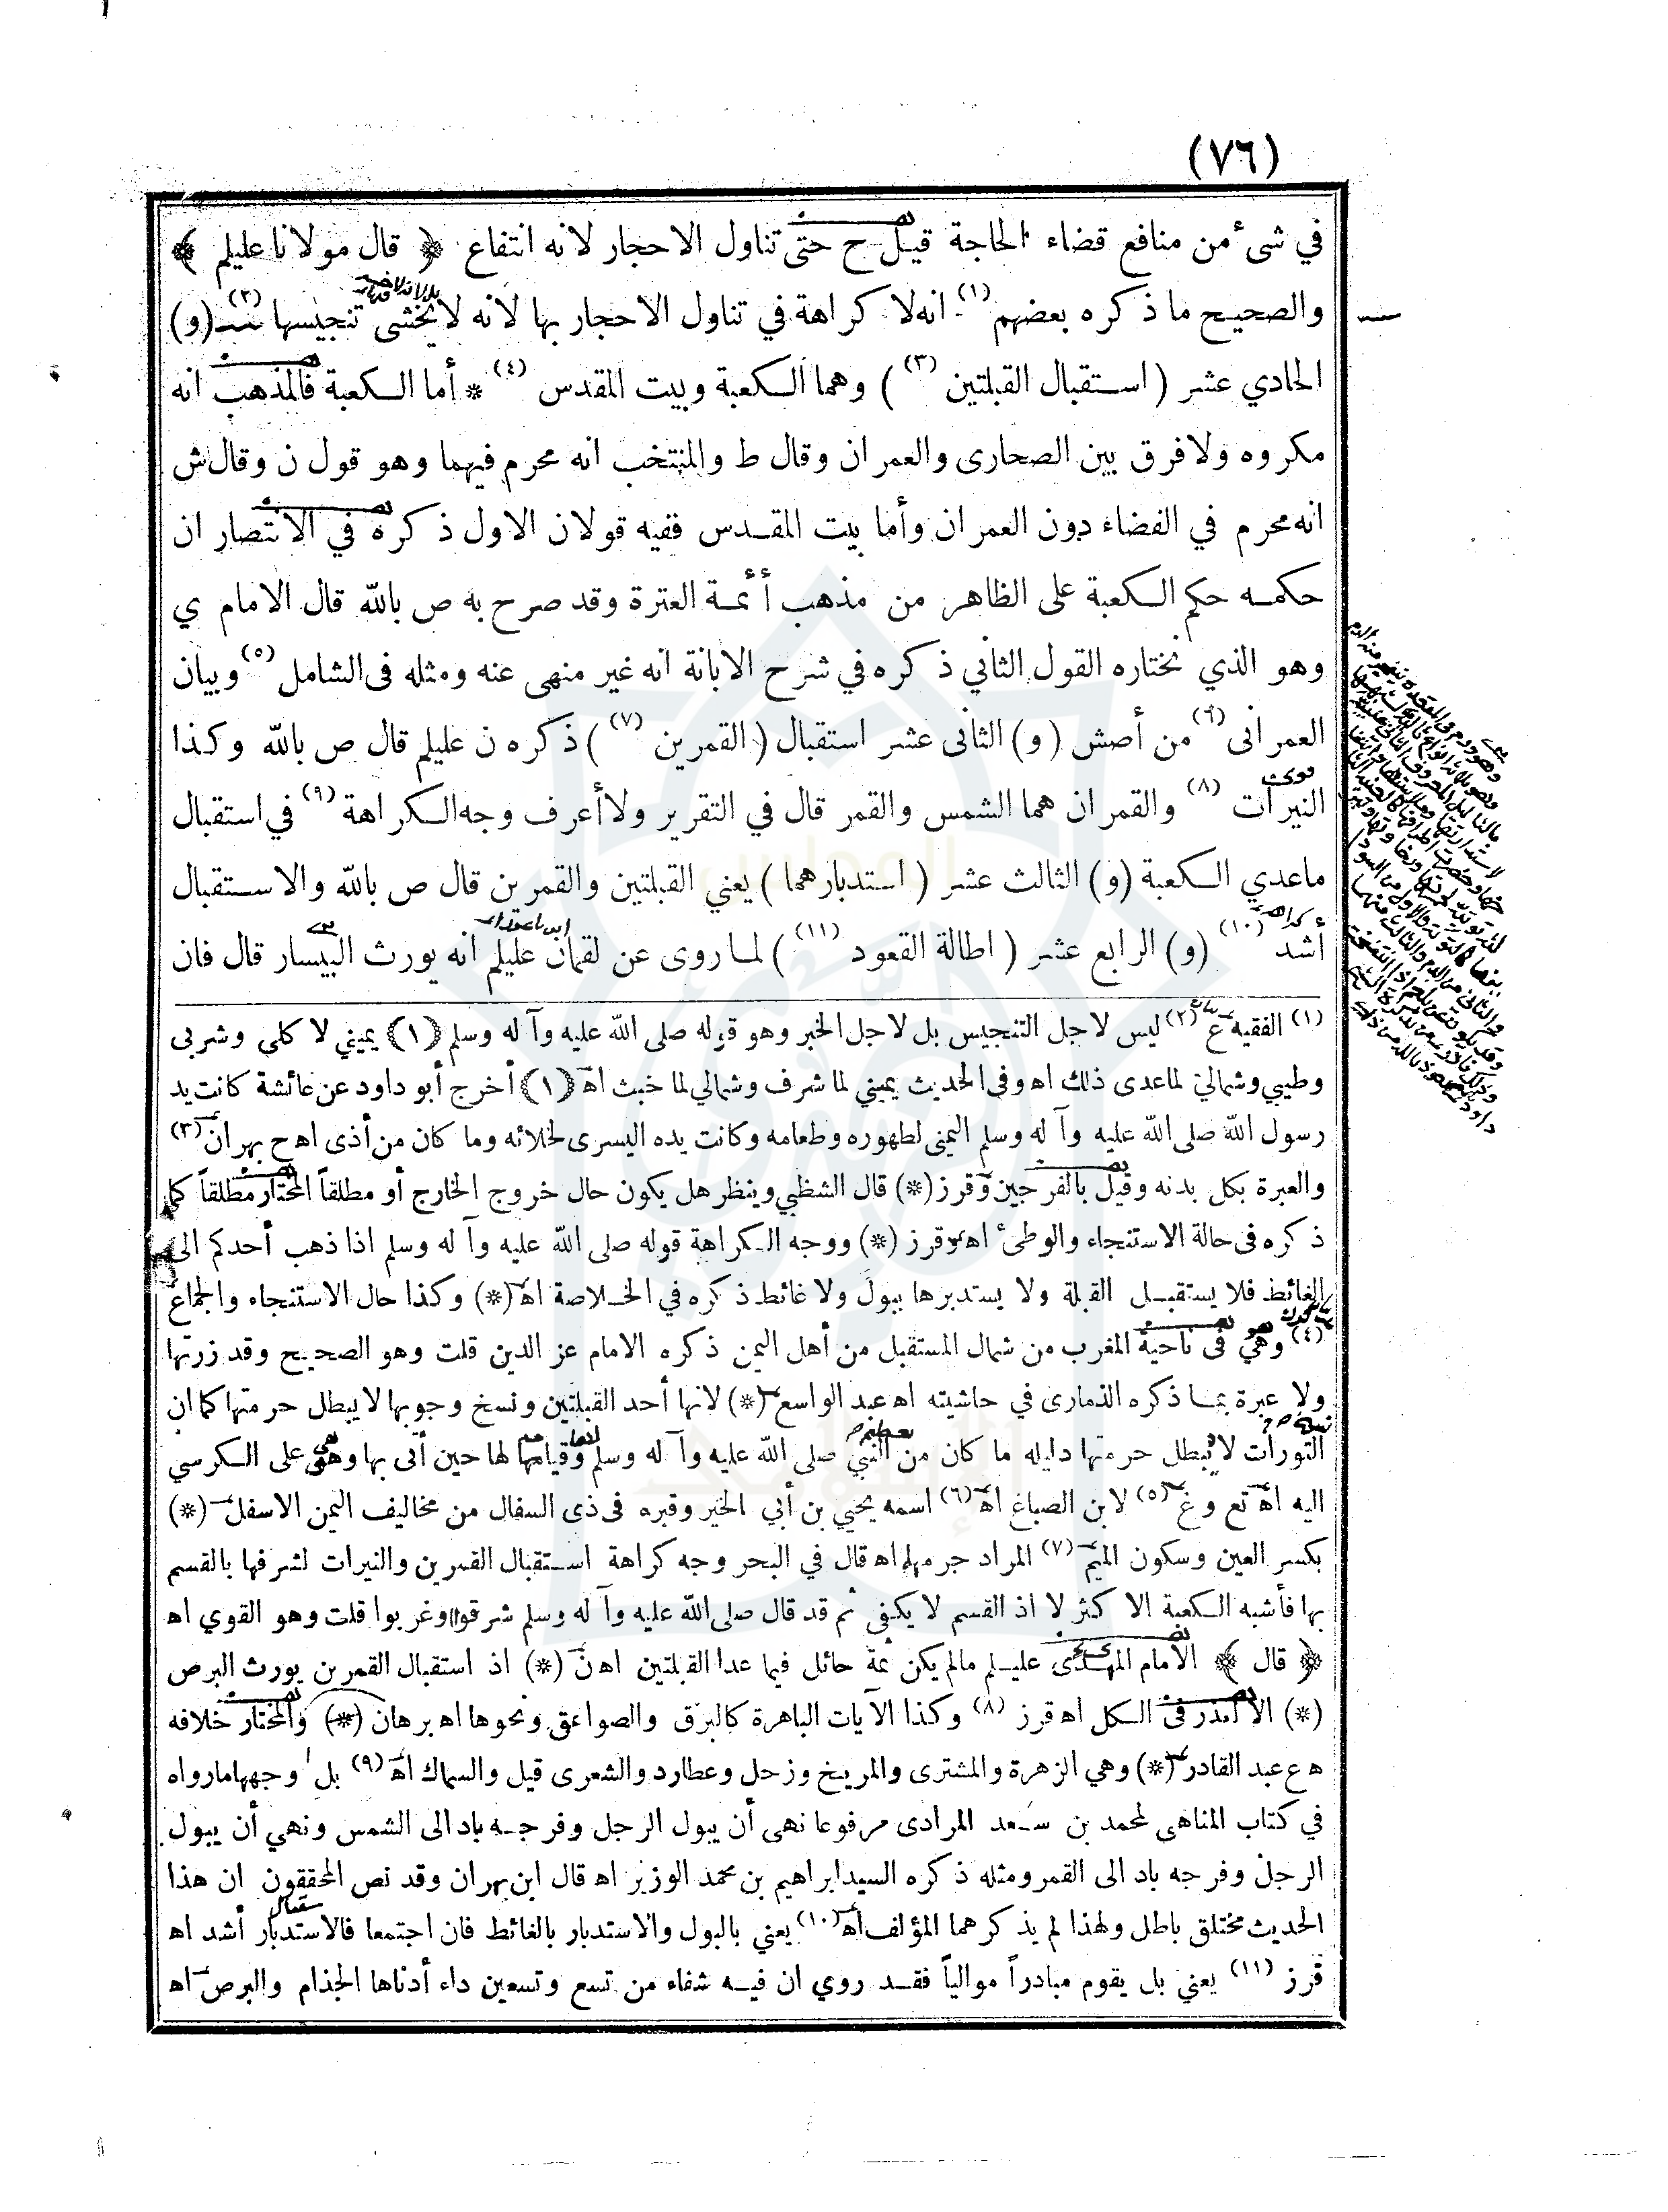 (٧٦)
في شئ من منافع قضاء الحاجة قيل ح حتى تناول الاحجار لانه انتفاع ﴿ قال مولانا عليلم ﴾
والصحيح ما ذكره بعضهم (١) انه لا كراهة في تناول الاحجار بها لانه لا يخشى تنجيسها (٢) (و)
الحادي عشر ( استقبال القبلتين (٣) ) وهما الكعبة وبيت المقدس (٤) * أما الكعبة فالمذهب انه
مكروه ولا فرق بين الصحارى والعمران وقال ط والمنتخب انه محرم فيهما وهو قول ن وقال ش
انه محرم في الفضاء دون العمران وأما بيت المقدس ففيه قولان الاول ذكره في الانتصار ان
حكمه حكم الكعبة على الظاهر من مذهب أئمة العترة وقد صرح به ص بالله قال الامام ي
وهو الذي نختاره القول الثاني ذكره في شرح الابانة انه غير منهى عنه ومثله فى الشامل (٥) وبيان
العمرانى (٦) من أصش (و) الثانى عشر استقبال ( القمرين (٧) ) ذكره ن عليلم قال ص بالله وكذا
النيرات (٨) والقمران هما الشمس والقمر قال في التقرير ولا أعرف وجه الكراهة (٩) في استقبال
ماعدي الكعبة (و) الثالث عشر ( استدبارهما ) يعني القبلتين والقمرين قال ص بالله والاستقبال
أشد (١٠) (و) الرابع عشر ( اطالة القعود (١١) ) لما روى عن لقمان عليلم انه يورث البيسار قال فان
(١) الفقيه ع (٢) ليس لاجل التنجيس بل لاجل الخبر وهو قوله صلى الله عليه وآله وسلم (١) يميني لاكلي وشربى
وطيبي وشمالي لماعدى ذلك اه وفى الحديث يميني لما شرف وشمالي لما خبث اه (١) أخرج أبو داود عن عائشة كانت يد
رسول الله صلى الله عليه وآله وسلم اليمنى لطهوره وطعامه وكانت يده اليسرى لخلائه وما كان من أذى اه ح بهران (٣)
والعبرة بكل بدنه وقيل بالفرجين وقرز (*) قال الشظبي وينظر هل يكون حال خروج الخارج أو مطلقاً المختار مطلقاً كما
ذكره فى حالة الاستنجاء والوطئ اه وقرز (*) ووجه الكراهة قوله صلى الله عليه وآله وسلم اذا ذهب أحدكم الى
الغائط فلا يستقبل القبلة ولا يستدبرها ببول ولا غائط ذكره في الخلاصة اه (*) وكذا حال الاستنجاء والجماع
(٤) وهي فى ناحية المغرب من شمال المستقبل من أهل اليمن ذكره الامام عز الدين قلت وهو الصحيح وقد زرتها
ولا عبرة بما ذكره الذمارى في حاشيته اه عبد الواسع (*) لانها أحد القبلتين ونسخ وجوبها لا يبطل حرمتها كما ان
التورات لا يبطل حرمتها دليله ما كان من النبي صلى الله عليه وآله وسلم وقيامها لها حين أتى بها وهي على الكرسي
اليه اه تع وغ (٥) لابن الصباغ اه (٦) اسمه يحيي بن أبي الخير وقبره فى ذى السفال من مخاليف اليمن الاسفل (*)
بكسر العين وسكون الميم (٧) المراد جرمهما اه قال في البحر وجه كراهة استقبال القمرين والنيرات لشرفها بالقسم
بها فأشبه الكعبة الاكثر لا اذ القسم لا يكفى ثم قد قال صلى الله عليه وآله وسلم شرقوا وغربوا قلت وهو القوي اه
﴿ قال ﴾ الامام المهدى عليلم مالم يكن ثمة حائل فيما عدا القبلتين اه ن (*) اذ استقبال القمرين يورث البرص
(*) الا لعذر فى الكل اه قرز (٨) وكذا الآيات الباهرة كالبرق والصواعق ونحوها اه برهان (*) والمختار خلافه
ه ع عبد القادر (*) وهي الزهرة والمشترى والمريخ وزحل وعطارد والشعرى قيل والسماك اه (٩) بل وجهها ما رواه
في كتاب المناهى لمحمد بن سعد المرادى مرفوعا نهى أن يبول الرجل وفرجه باد الى الشمس ونهي أن يبول
الرجل وفرجه باد الى القمر ومثله ذكره السيد ابراهيم بن محمد الوزير اه قال ابن بهران وقد نص المحققون ان هذا
الحديث مختلق باطل ولهذا لم يذكرهما المؤلف اه (١٠) يعني بالبول والاستدبار بالغائط فان اجتمعا فالاستدبار أشد اه
قرز (١١) يعني بل يقوم مبادراً موالياً فقد روي ان فيه شفاء من تسع وتسعين داء أدناها الجذام والبرص اه